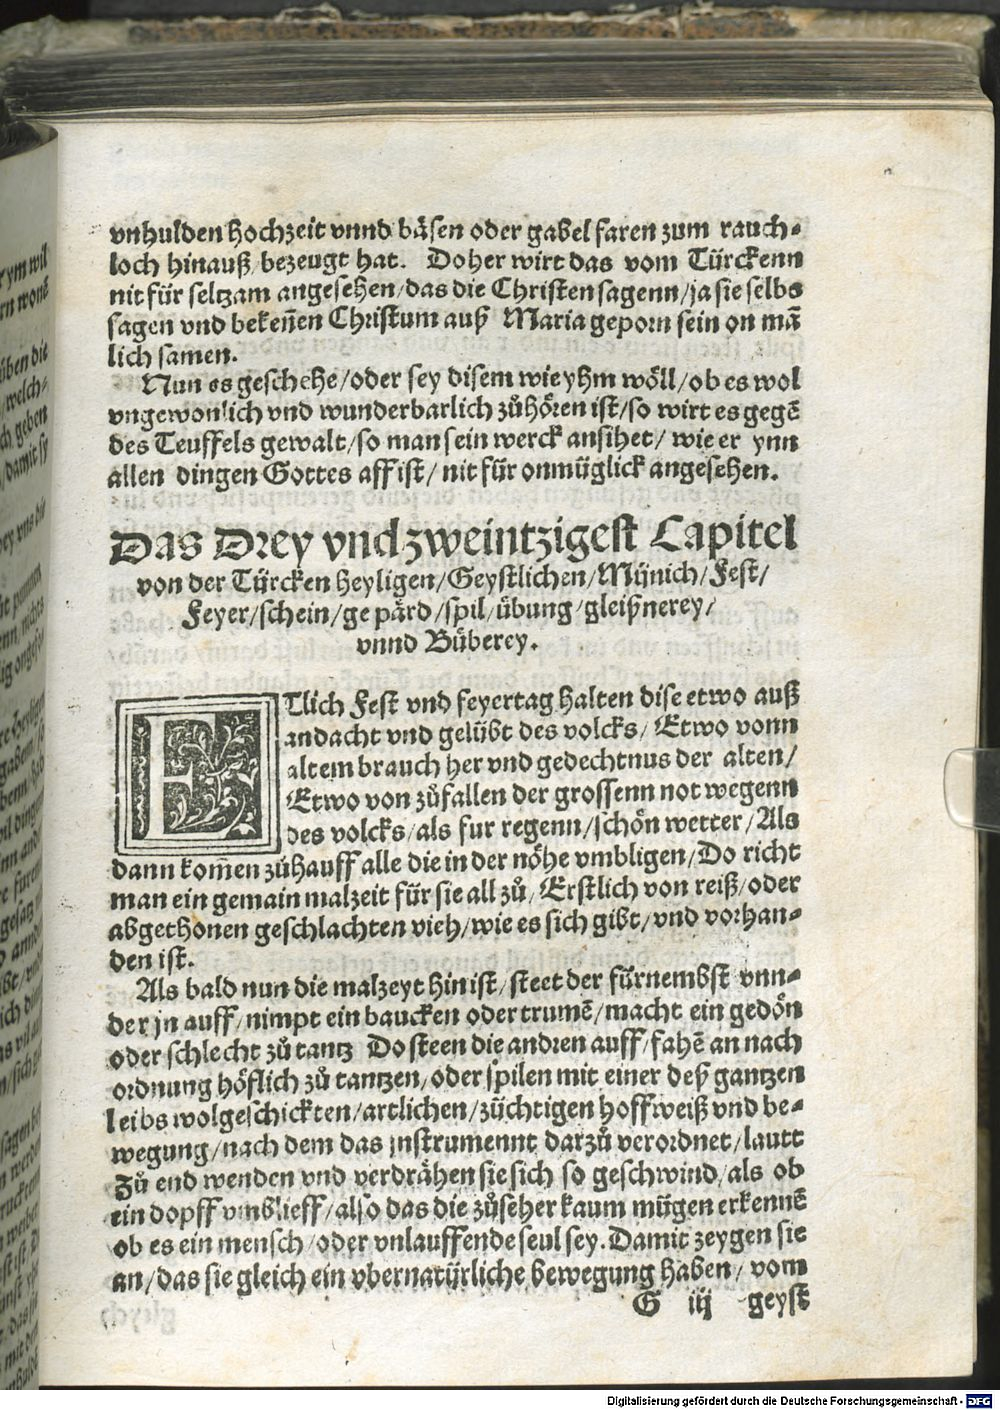 vnhulden hochzeit vnnd bäsen oder gabel faren zum rauch-
loch hinauß/bezeugt hat. Doher wirt das vom Türckenn
nit für seltzam angesehen/das die Christen sagenn/ja sie selbs
sagen vnd bekeñen Christum auß Maria geporn sein on mã
lich samen.
Nun es geschehe/oder sey disem wie yhm wöll/ob es wol
vngewonlich vnd wunderbarlich zůhören ist/so wirt es gegẽ
des Teuffels gewalt/so man sein werck ansihet/wie er ynn
allen dingen Gottes aff ist/nit für onmüglick angesehen.
Das Drey vnd zweintzigest Capitel
von der Türcken heyligen/Geystlichen/Münich/Fest/
Feyer/schein/gepärd/spil/übung/gleißnerey/
vnnd Büberey.
ETlich Fest vnd feyertag halten dise etwo auß
andacht vnd gelübt des volcks/Etwo vonn
altem brauch her vnd gedechtnus der alten/
Etwo von zůfallen der grossenn not wegenn
des volcks/als fur regenn/schön wetter/Als
dann komen zůhauff alle die in der nöhe vmbligen/Do richt
man ein gemain malzeit für sie all zů/Erstlich von reiß/oder
abgethonen geschlachten vieh/wie es sich gibt/vnd vorhan-
den ist.
Als bald nun die malzeyt hin ist/steet der fürnembst vnn-
der jn auff/nimpt ein baucken oder trumẽ/macht ein gedön
oder schlecht zů tantz Do steen die andren auff/fahẽ an nach
ordnung höflich zů tantzen/oder spilen mit einer deß gantzen
leibs wolgeschickten/artlichen/züchtigen hoffweiß vnd be-
wegung/nach dem das jnstrumennt darzů verordnet/lautt
Zů end wenden vnd verdrähen sie sich so geschwind/als ob
ein dopff vmblieff/also das die zůseher kaum mügen erkennẽ
ob es ein mensch/oder vnlauffende seul sey. Damit zeygen sie
an/das sie gleich ein vbernatürliche bewegung haben/vom
G iij geyst
Digitalisierung gefördert durch die Deutsche Forschungsgemeinschaft - DFG